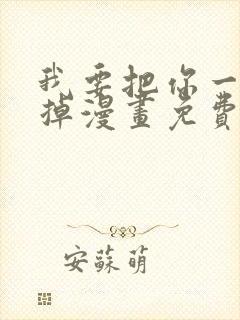 我要把你一
掉漫畫免費
安蘇萌